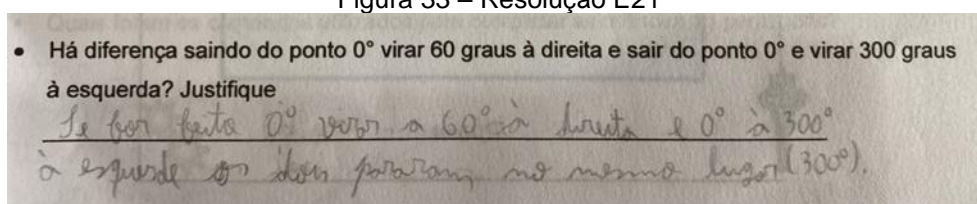 Figura 33 – Resolução E21
• Há diferença saindo do ponto 0° virar 60 graus à direita e sair do ponto 0° e virar 300 graus
à esquerda? Justifique
Se for feito 0° virar a 60° à direita e 0° à 300°
à esquerda os dois pararam no mesmo lugar (300°).